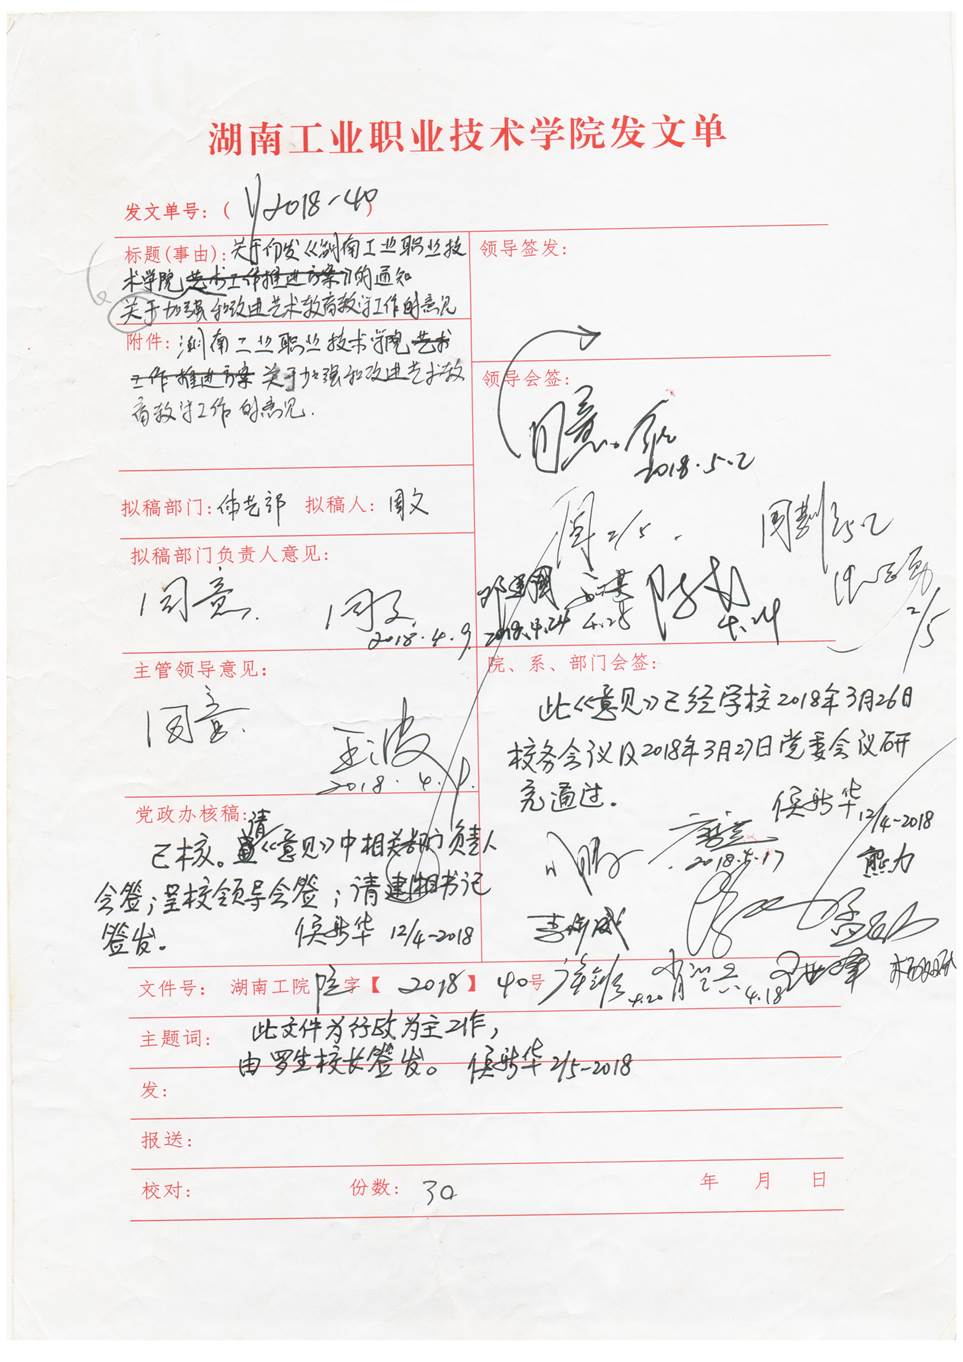 湖南工业职业技术学院发文单
发文单号：( 2018-40 )
标题(事由)：关于印发《湖南工业职业技
术学院艺术工作推进方案》的通知
关于加强和改进艺术教育教学工作的意见
附件：湖南工业职业技术学院艺术
工作推进方案 关于加强和改进艺术教
育教学工作的意见.
拟稿部门：体艺部 拟稿人：周文
拟稿部门负责人意见：
同意.
周文
2018.4.9.
主管领导意见：
同意.
王波
2018.4.9.
党政办核稿：
已核。请《意见》中相关部门负责人
会签；呈校领导会签；请建湘书记
签发。 侯新华 12/4-2018
领导签发：
领导会签：
同意.
2018.5.2
周 2/5.
邓建国
2018.4.24
4.25
4.24
2/5
院、系、部门会签：
此《意见》已经学校2018年3月26日
校务会议及2018年3月27日党委会议研
究通过。 侯新华 12/4-2018
2018.4.17
熊力
4.20
4.18
文件号： 湖南工院 院 字【 2018 】 40号
主题词： 此文件为行政为主工作，
由罗生校长签发。 侯新华 2/5-2018
发：
报送：
校对： 份数：30 年 月 日